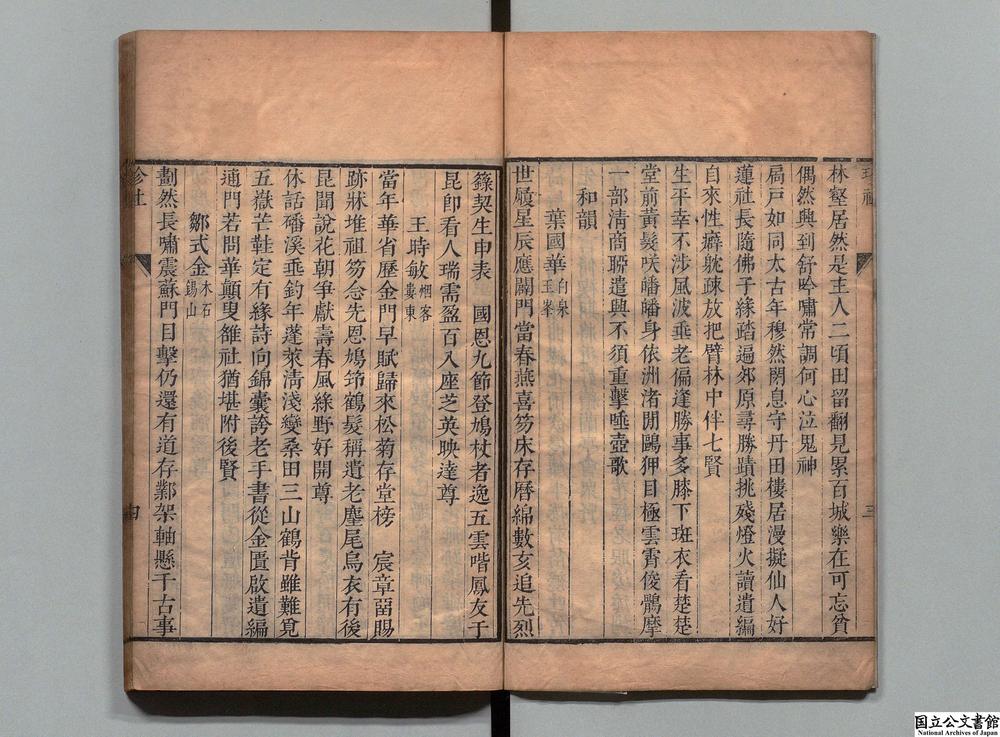 林壑居然是主人二頃田留翻見累百城樂在可忘貧
偶然興到舒吟嘯常調何心泣鬼神
扃戶如同太古年穆然閉息守丹田樓居漫擬仙人好
蓮社長隨佛子緣踏遍郊原尋勝蹟挑殘燈火讀遺編
自來性癖躭疎放把臂林中伴七賢
生平幸不涉風波垂老偏逢勝事多膝下斑衣看楚楚
堂前黃髮咲皤皤身依洲渚閒鷗狎目極雲霄俊鶻摩
一部清商聊遣興不須重擊唾壺歌
和韻
葉國華白泉玉峯
世履星辰應闢門當春燕喜笏床存曆綿數亥追先烈
籙契生申表 國恩九節登鳩杖者逸五雲喈鳳友于
昆即看人瑞需盈百入座芝英映達尊
王時敏烟客婁東
當年華省歷金門早賦歸來松菊存堂榜 宸章曾賜
跡牀堆祖笏念先恩鳩筇鶴髮稱遺老塵尾烏衣有後
昆聞說花朝爭獻壽春風綠野好開尊
休話磻溪垂釣年蓬萊清淺變桑田三山鶴背雖難覓
五嶽芒鞋定有緣詩向錦囊誇老手書從金匱啟遺編
通門若問華顛叟雒社猶堪附後賢
鄒式金木石錫山
劃然長嘯震蘇門目擊仍還有道存鄴架軸懸千古事
三
四
国立公文書館
National Archives of Japan